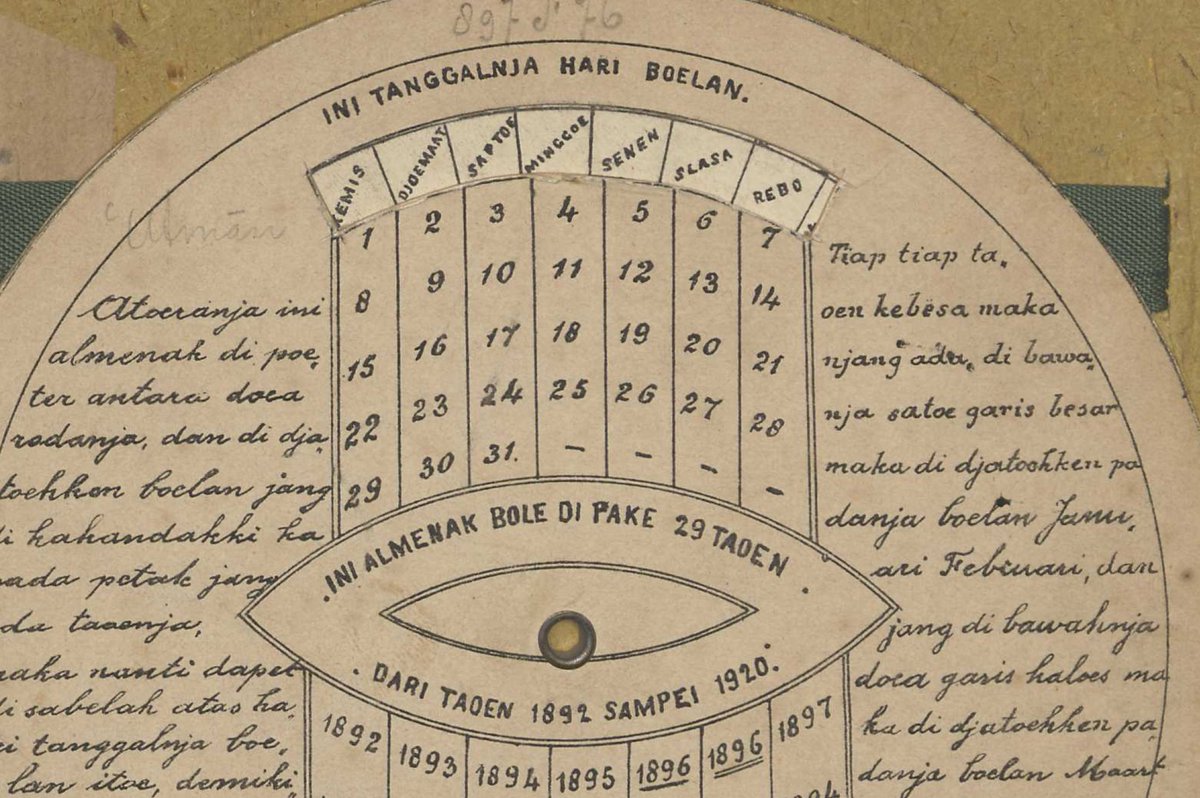 897 d 76
INI TANGGALNJA HARI BOELAN.
KEMIS DJOEMAAT SAPTOE MINGGOE SENEN SLASA REBO
1 2 3 4 5 6 7
8 9 10 11 12 13 14
15 16 17 18 19 20 21
22 23 24 25 26 27 28
29 30 31. – – – –
Atoeranja ini
almenak di poe,
ter antara doea
rodanja, dan di dja,
toehken boelan jang
di kahandakki ka
pada petak jang
da taoenja,
maka nanti dapet
di sabelah atas ha,
ri tanggalnja boe,
lan itoe, demiki,
Tiap tiap ta,
oen kebësa maka
njang ada, di bawa,
nja satoe garis besar
maka di djatoehken pa
danja boelan Janu,
ari Februari, dan
jang di bawahnja
doea garis haloes ma
ka di djatoehken pa,
danja boelan Maart
.INI ALMENAK BOLE DI PAKE 29 TAOEN.
. DARI TAOEN 1892 SAMPEI 1920.
1892 1893 1894 1895 1896 1896 1897